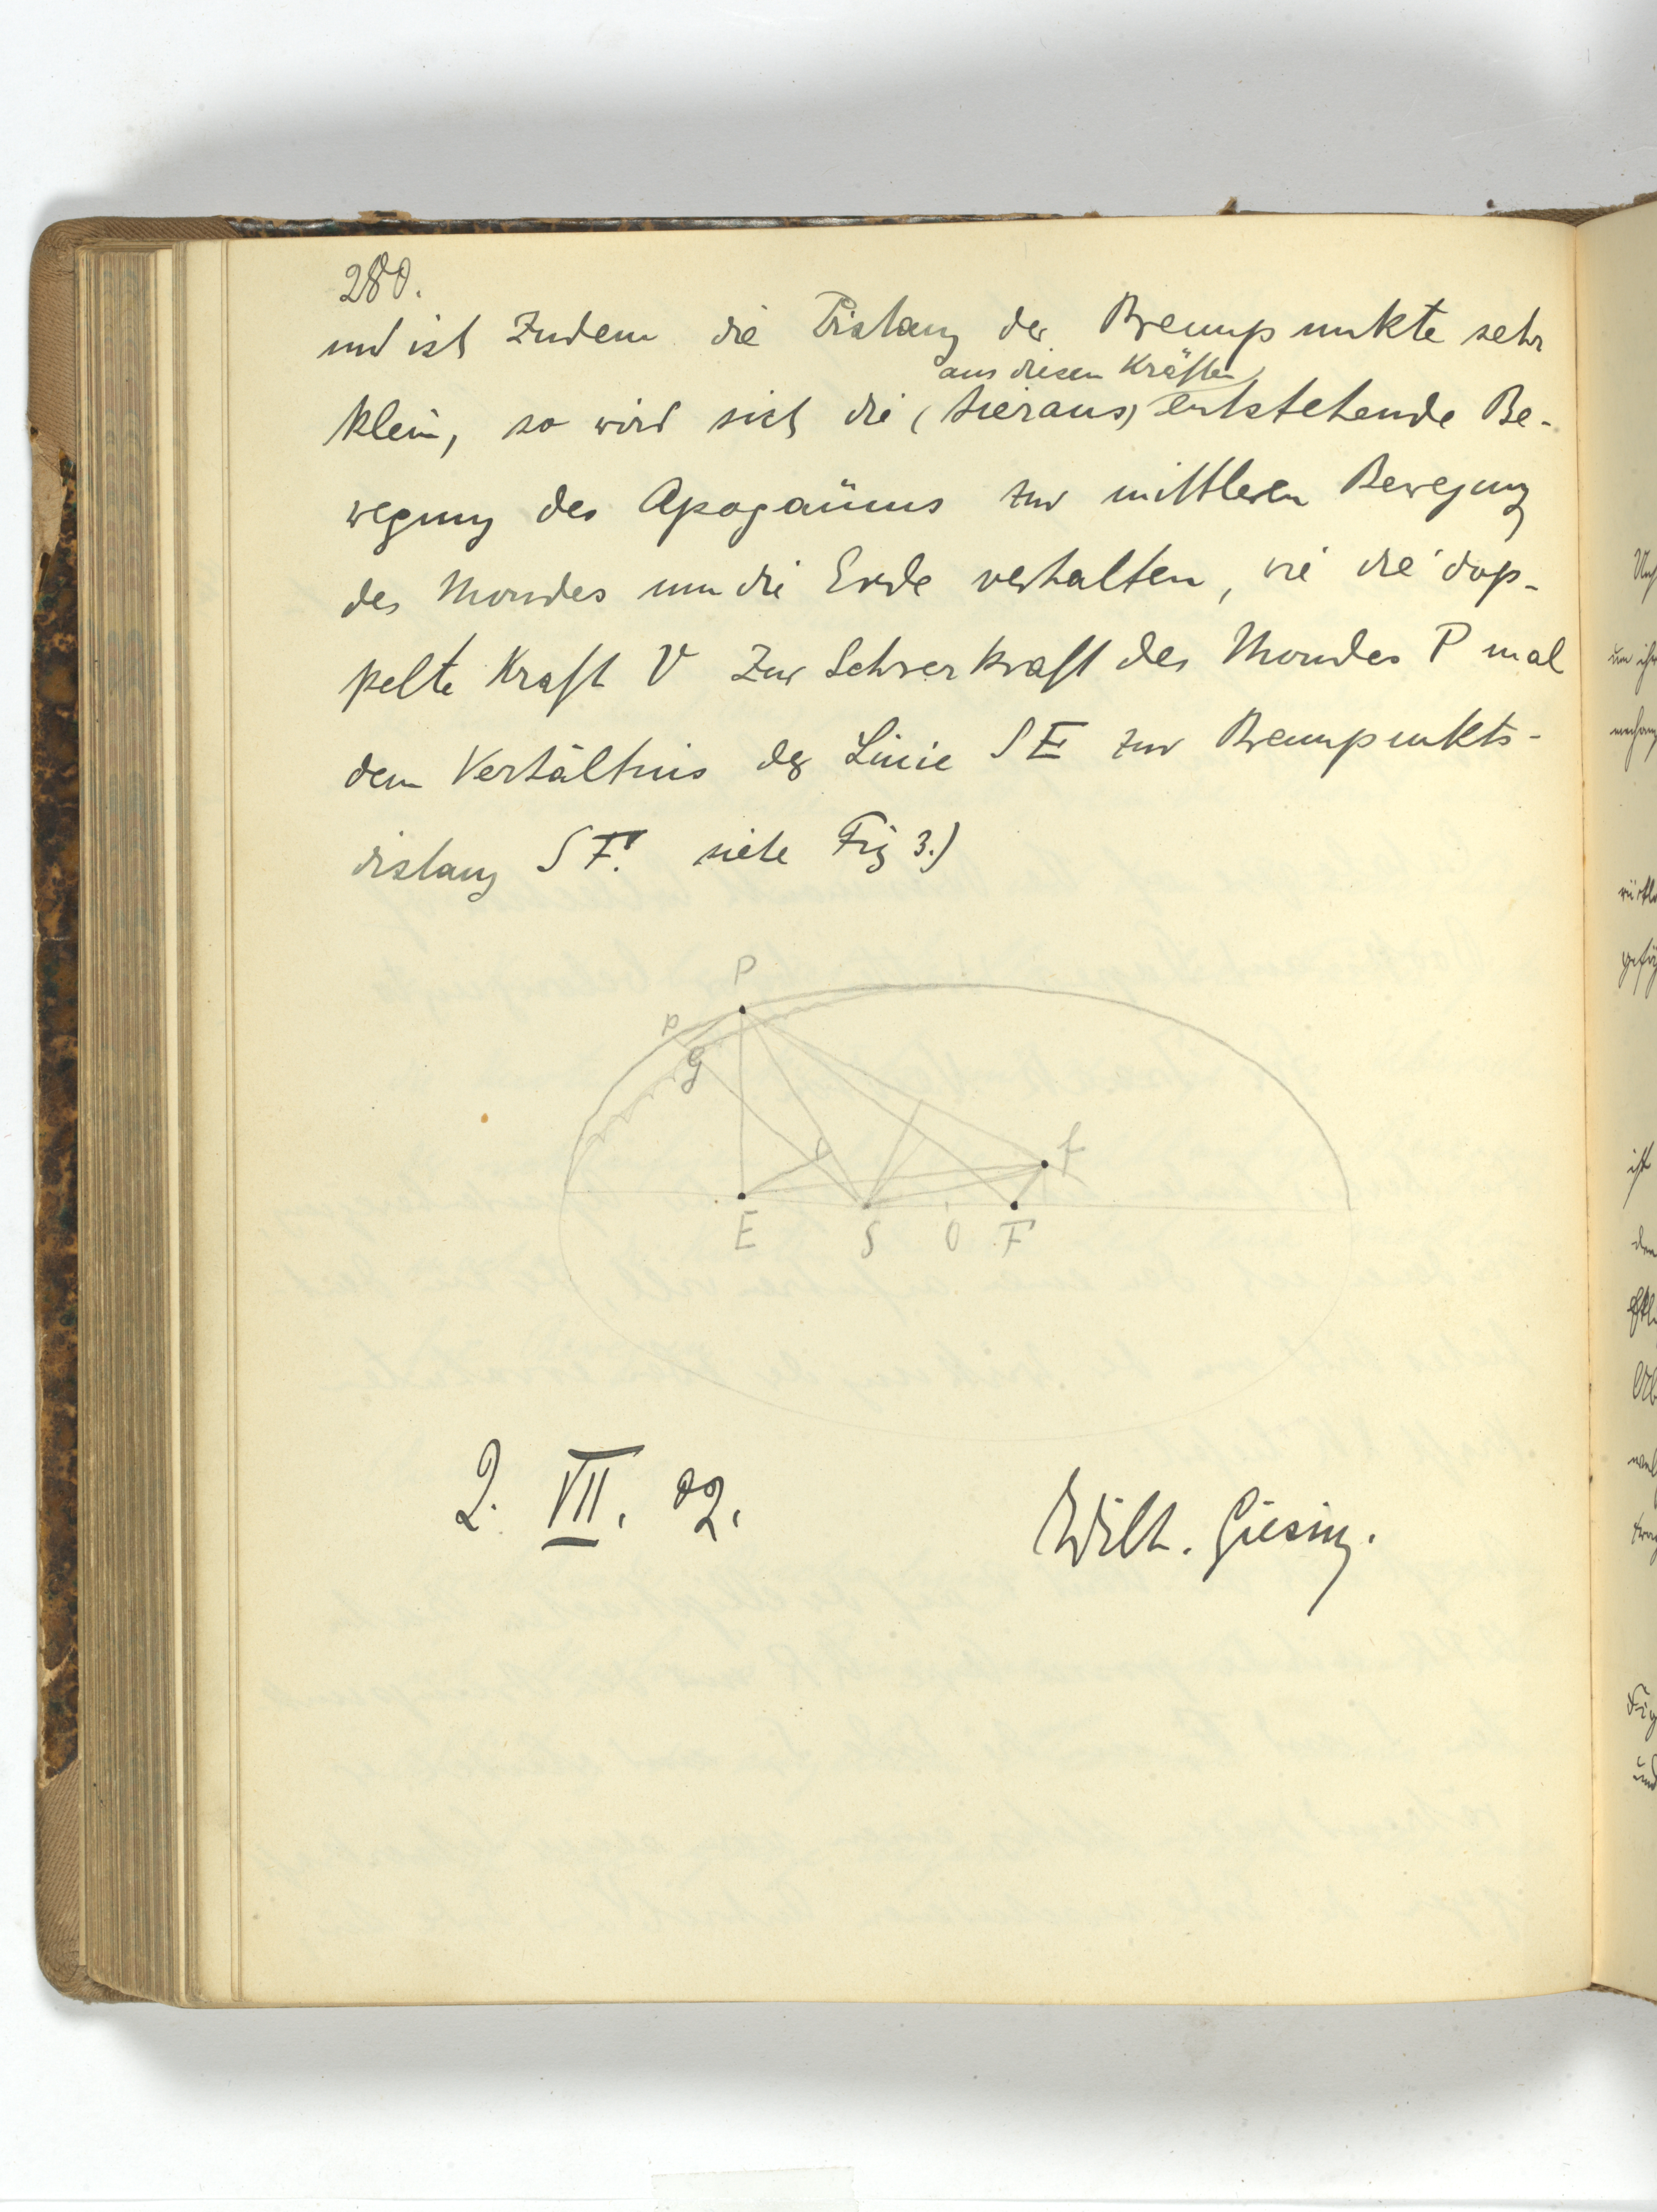 280.
und ist zudem die Distanz der Brennpunkte sehr
aus diesen Kräften
klein, so wird sich die (hieraus) entstehende Be-
wegung des Apogäums zur mittleren Bewegung
des Mondes um die Erde verhalten, wie die dop-
pelte Kraft V zur Schwerkraft des Mondes P mal
dem Verhältnis der Linie SE zur Brennpunkts-
distanz SF. siehe Fig 3.)
P
p
G
f
E S O F
2. VII. 02.
Wilh. Giesing.